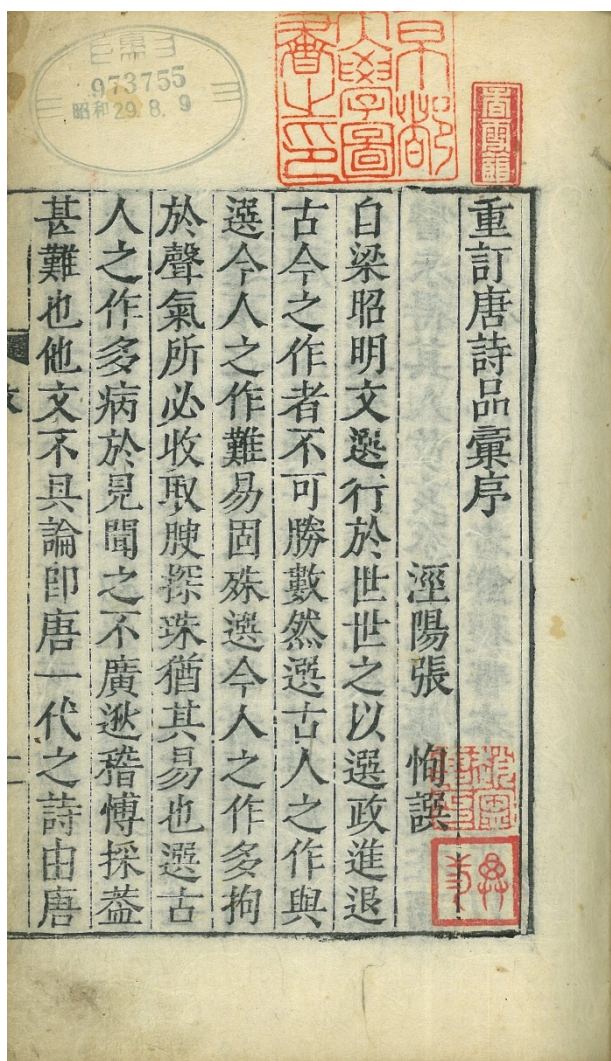 973755
昭和29.8.9
早稻田大學圖書之印
重訂唐詩品彙序
涇陽張恂譔
自梁昭明文選行於世世之以選政進退
古今之作者不可勝數然選古人之作與
選今人之作難易固殊選今人之作多拘
於聲氣所必收取腴探珠猶其易也選古
人之作多病於見聞之不廣逖稽博採葢
甚難也他文不具論卽唐一代之詩由唐